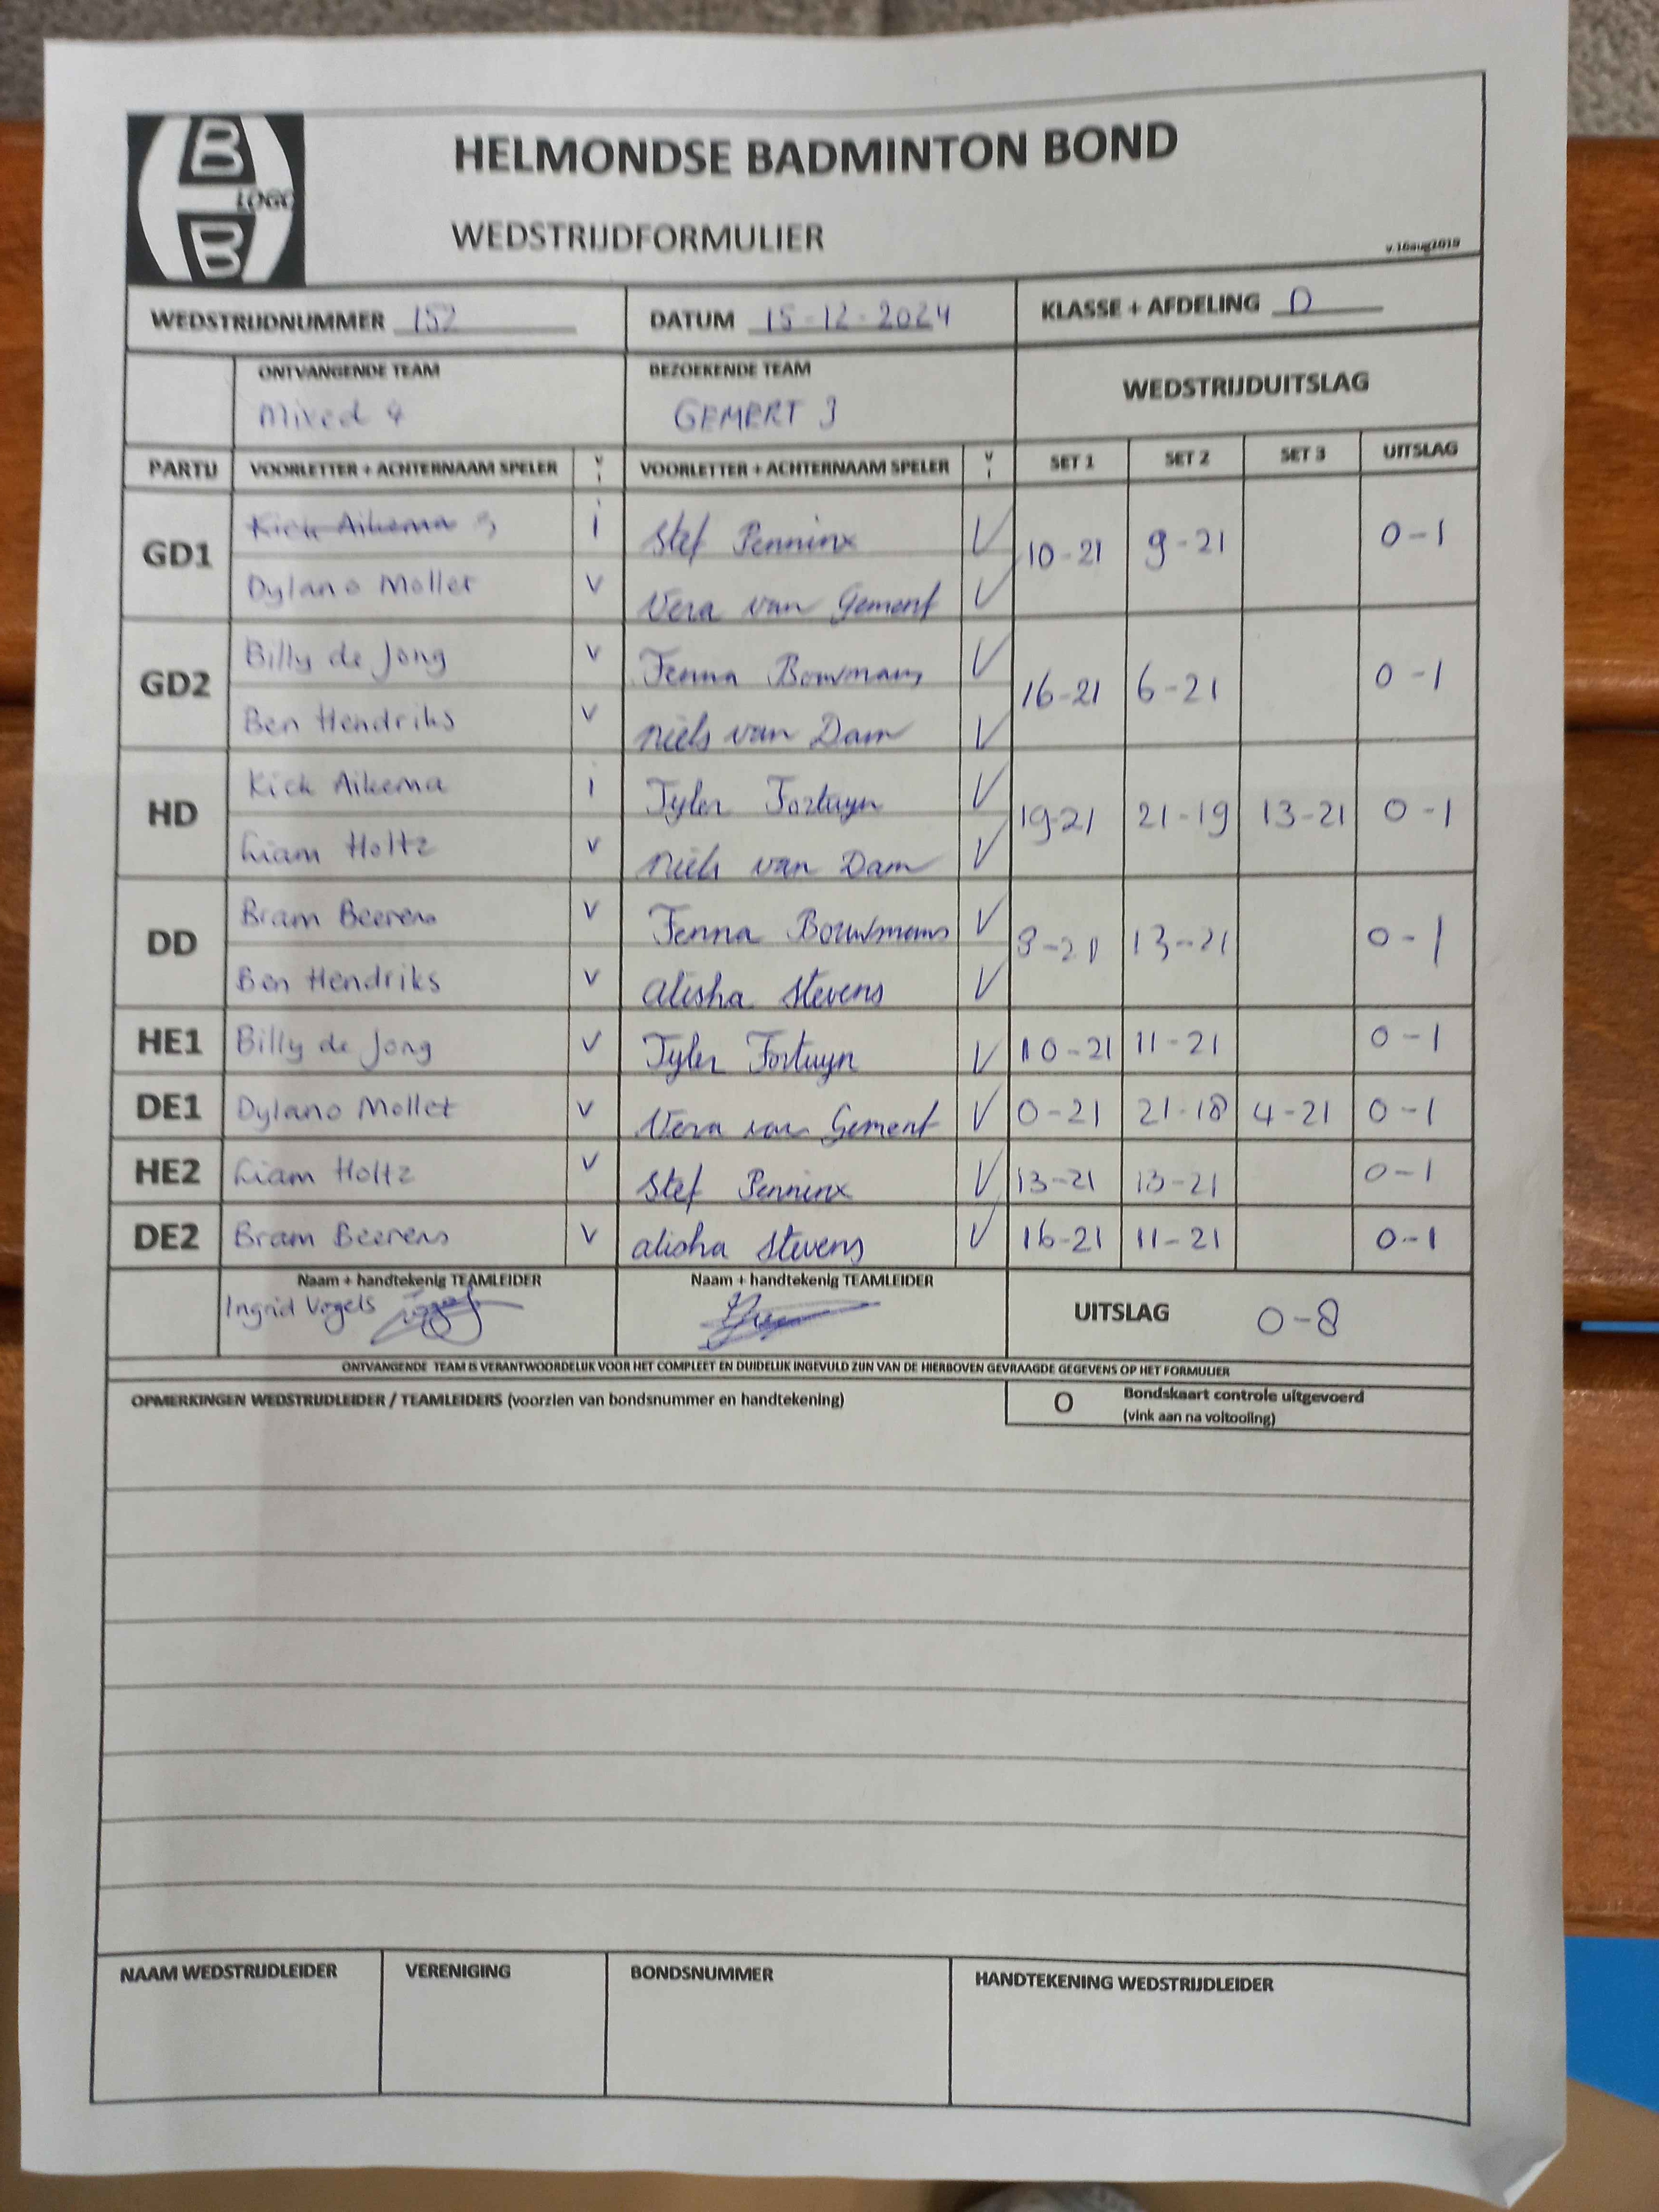 B
LOGO
B
HELMONDSE BADMINTON BOND
WEDSTRIJDFORMULIER
v.16aug2019
WEDSTRIJDNUMMER 152 DATUM 15-12-2024 KLASSE + AFDELING D
ONTVANGENDE TEAM BEZOEKENDE TEAM WEDSTRIJDUITSLAG
Mixed 4 GEMERT 3
PARTIJ VOORLETTER + ACHTERNAAM SPELER V I VOORLETTER + ACHTERNAAM SPELER V I SET 1 SET 2 SET 3 UITSLAG
GD1 Kick Aikema i Stef Penninx V 10-21 9-21 0-1
Dylano Mollet v Vera van Gemert V
GD2 Billy de Jong v Fenna Bouwmans V 16-21 6-21 0-1
Ben Hendriks v Niels van Dam V
HD Kick Aikema i Tyler Fortuyn V 19-21 21-19 13-21 0-1
Liam Holtz v Niels van Dam V
DD Bram Beerens v Fenna Bouwmans V 8-21 13-21 0-1
Ben Hendriks v alisha stevens V
HE1 Billy de Jong v Tyler Fortuyn V 10-21 11-21 0-1
DE1 Dylano Mollet v Vera van Gemert V 0-21 21-18 4-21 0-1
HE2 Liam Holtz v Stef Penninx V 13-21 13-21 0-1
DE2 Bram Beerens v alisha stevens V 16-21 11-21 0-1
Naam + handtekenig TEAMLEIDER Naam + handtekenig TEAMLEIDER UITSLAG 0-8
Ingrid Vogels
ONTVANGENDE TEAM IS VERANTWOORDELIJK VOOR HET COMPLEET EN DUIDELIJK INGEVULD ZIJN VAN DE HIERBOVEN GEVRAAGDE GEGEVENS OP HET FORMULIER
OPMERKINGEN WEDSTRIJDLEIDER / TEAMLEIDERS (voorzien van bondsnummer en handtekening) O Bondskaart controle uitgevoerd
(vink aan na voltooling)
NAAM WEDSTRIJDLEIDER VERENIGING BONDSNUMMER HANDTEKENING WEDSTRIJDLEIDER